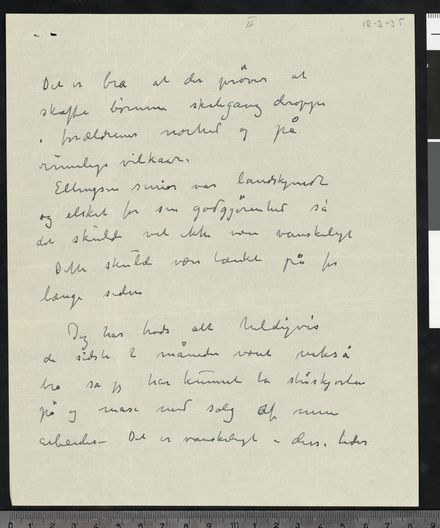 II 18-2-35
Det er bra at du prøver at
skaffe børnene skolegang deroppe
i forældrenes nærhed og på
rimelige vilkaar.
Ellingsen senior var landskjendt
og elsket for sin godgjörenhed så
det skulde vel ikke være vanskeligt
Dette skulde være tænkt på for
længe siden
Jeg har trods alt heldigvis
de sidste 2 måneder været
bra så jeg har kunnet ta
på og mase med salg af mine
arbeider – Det er vanskeligt i disse tider